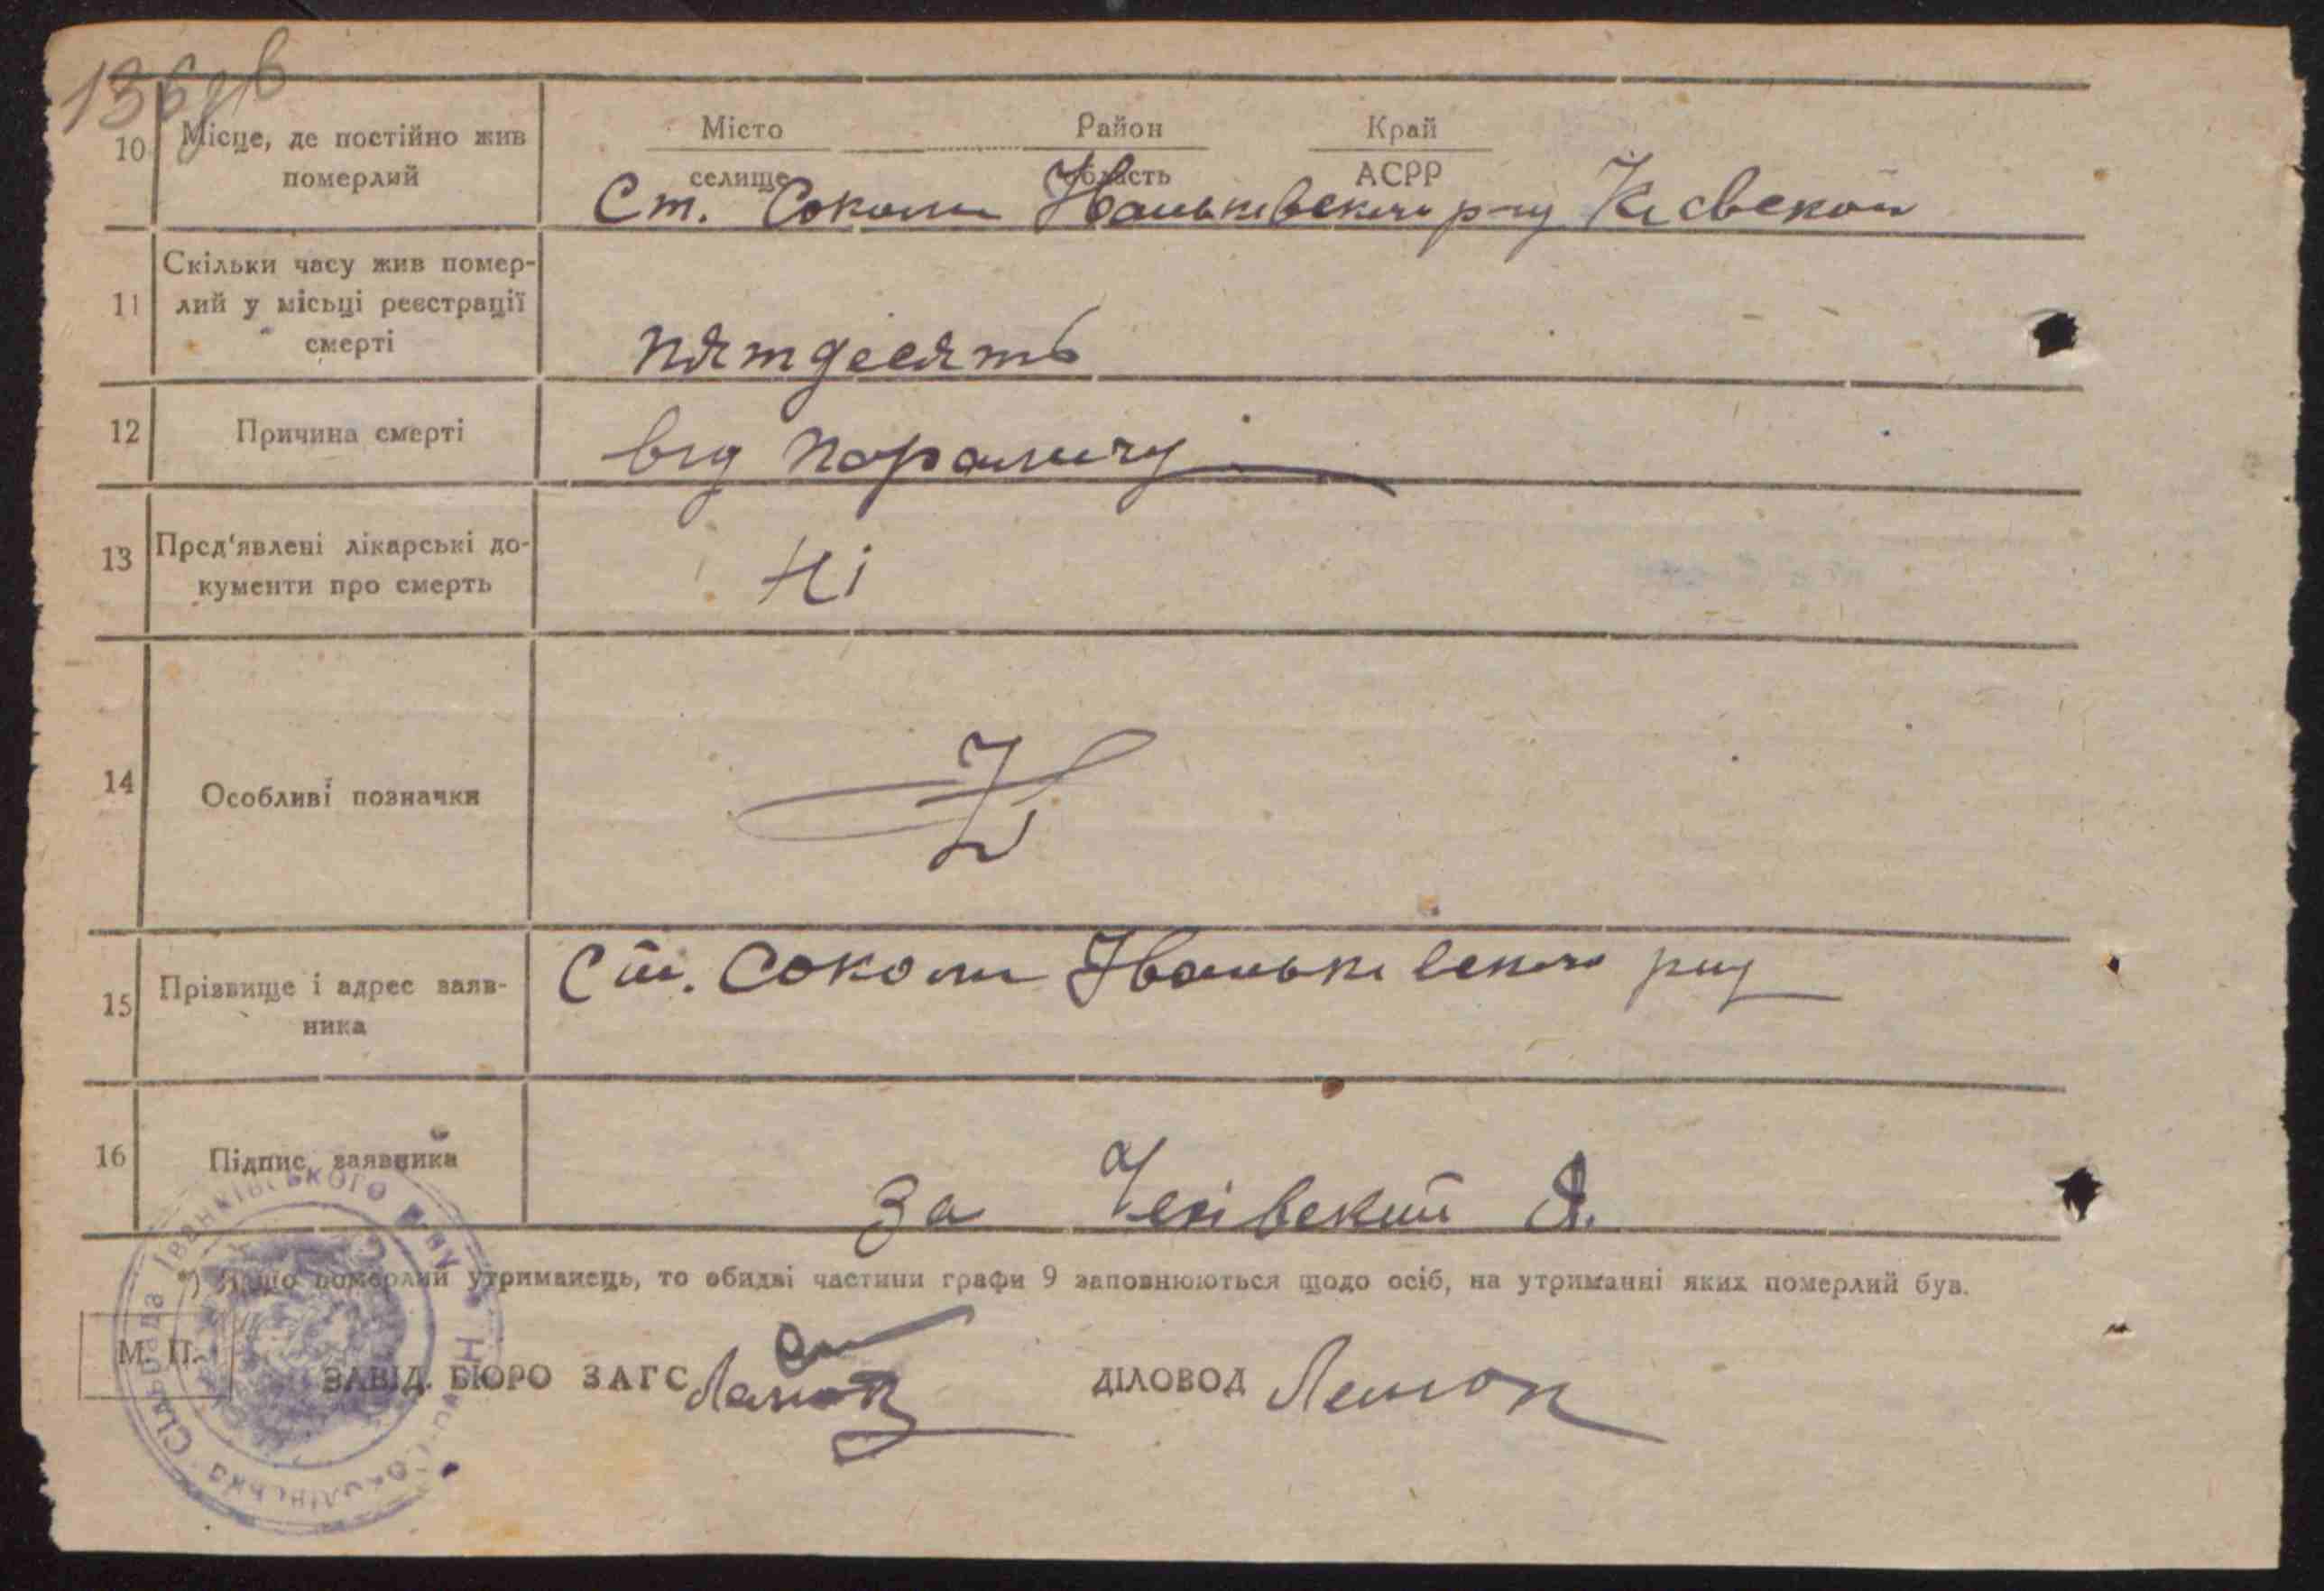 136 зв
Місто Район Край
10 Місце, де постійно жив
померлий
селище область АСРР
Ст. Соколи Иваньківского р-ну Київской
11 Скільки часу жив помер-
лий у місьці реєстрації
смерті
пятдесять
12 Причина смерті
від пораличу
13 Пред'явлені лікарські до-
кументи про смерть
Ні
14 Особливі позначки
15 Прізвище і адрес заяв-
ника
Ст. Соколи Иваньківского рну
16 Підпис заявника
За Я.
*) Якщо померлий утриманець, то обидві частини графи 9 заповнюються щодо осіб, на утриманні яких померлий був.
М. П.
ЗАВІД. БЮРО ЗАГС
ДІЛОВОД
Сільрада Іванківського р-ну